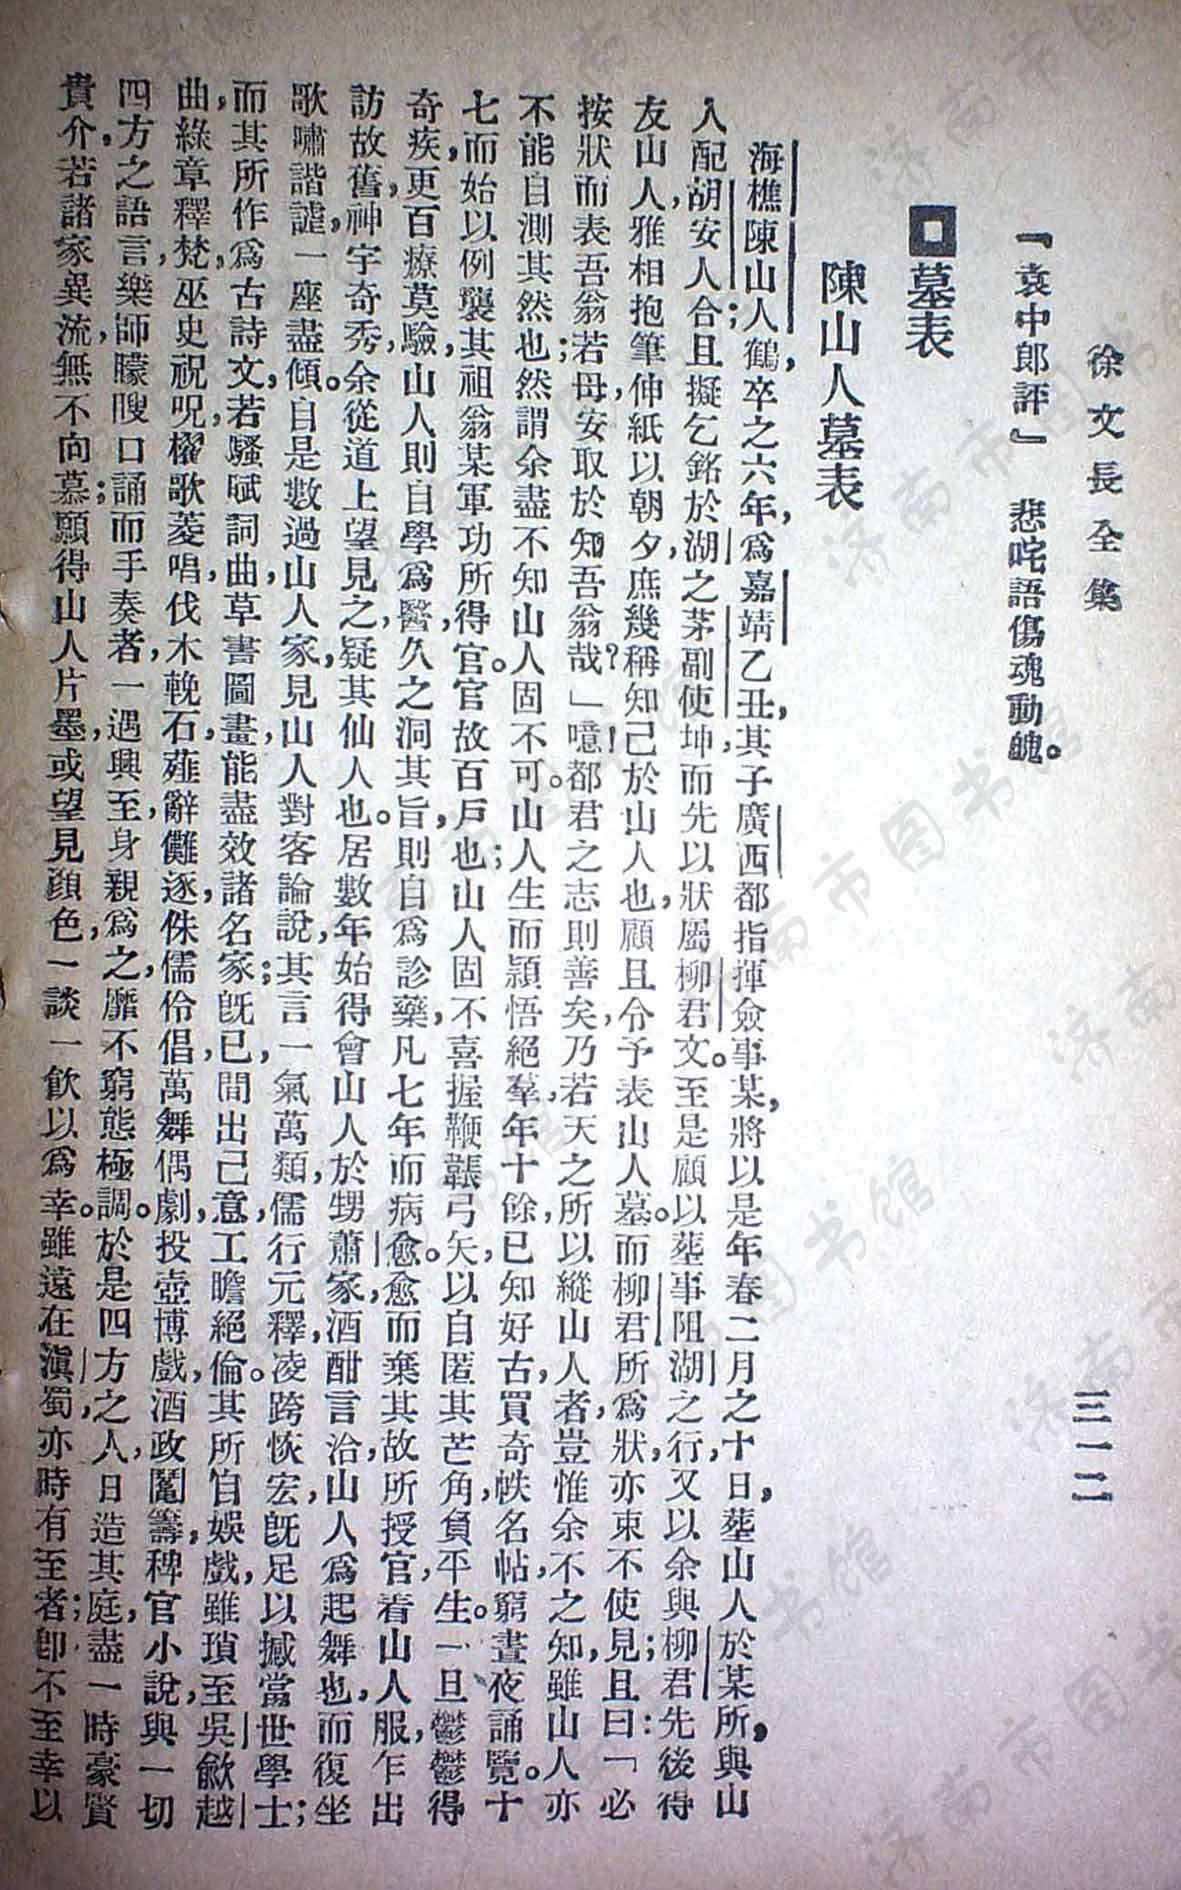 徐文長全集
三一二
『袁中郎評』 悲咤語傷魂動魄。
墓表
陳山人墓表
海樵陳山人鶴，卒之六年，爲嘉靖乙丑，其子廣西都指揮僉事某，將以是年春二月之十日，塟山人於某所，與山
人配胡安人合；且擬乞銘於湖之茅副使坤，而先以狀屬柳君文。至是顧以塟事阻湖之行，又以余與柳君先後得
友山人，雅相抱筆伸紙以朝夕，庶幾稱知己於山人也，顧且令予表山人墓。而柳君所爲狀，亦束不使見；且曰：「必
按狀而表吾翁；若毋安取於知吾翁哉？」噫！都君之志則善矣，乃若天之所以縱山人者，豈惟余不之知，雖山人亦
不能自測其然也，然謂余盡不知山人固不可。山人生而穎悟絕羣，年十餘，已知好古，買奇帙名帖，窮晝夜誦覽。十
七而始以例襲其祖翁某軍功所得官。官故百戶也；山人固不喜握鞭韔弓矢，以自匿其芒角，負平生。一旦鬱鬱得
奇疾，更百療莫驗，山人則自學爲醫，久之洞其旨，則自爲診藥，凡七年而病愈。愈而棄其故所授官，着山人服，乍出
訪故舊，神宇奇秀，余從道上望見之，疑其仙人也。居數年，始得會山人於甥蕭家，酒酣言洽，山人爲起舞也，而復坐，
歌嘯諧謔，一座盡傾。自是數過山人家，見山人對客論說，其言一氣萬類，儒行元釋，凌跨恢宏，旣足以撼當世學士；
而其所作爲古詩文，若騷賦詞曲，草書圖畫，能盡效諸名家；旣已，間出己意，工贍絕倫。其所自娛戲，雖瑣至吳歈越
曲，綠章釋梵，巫史祝呪，櫂歌菱唱，伐木輓石，薤辭儺逐，侏儒伶倡，萬舞偶劇，投壺博戲，酒政鬮籌，稗官小說，與一切
四方之語言，樂師矇瞍，口誦而手奏者，一遇興至，身親爲之，靡不窮態極調。於是四方之人，日造其庭，盡一時豪賢
貴介，若諸家異流，無不向慕，願得山人片墨，或望見顏色，一談一飲以爲幸。雖遠在滇蜀，亦時有至者；卽不至，幸以